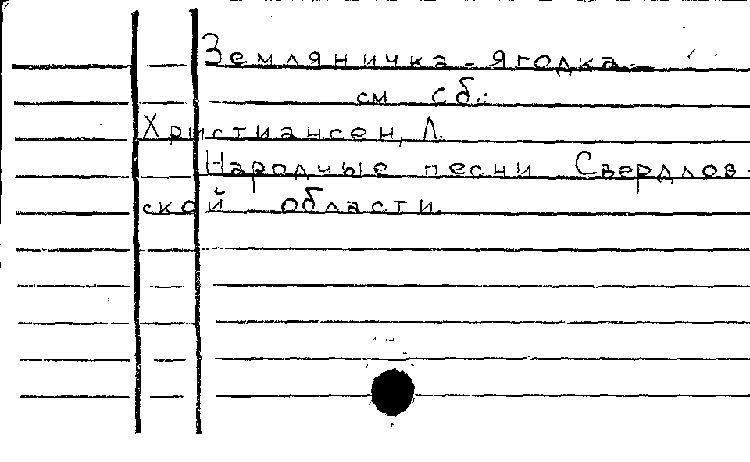 Земляничка-ягодка.
см сб.:
Христиансен, Л.
Народные песни Свердлов-
ской области.